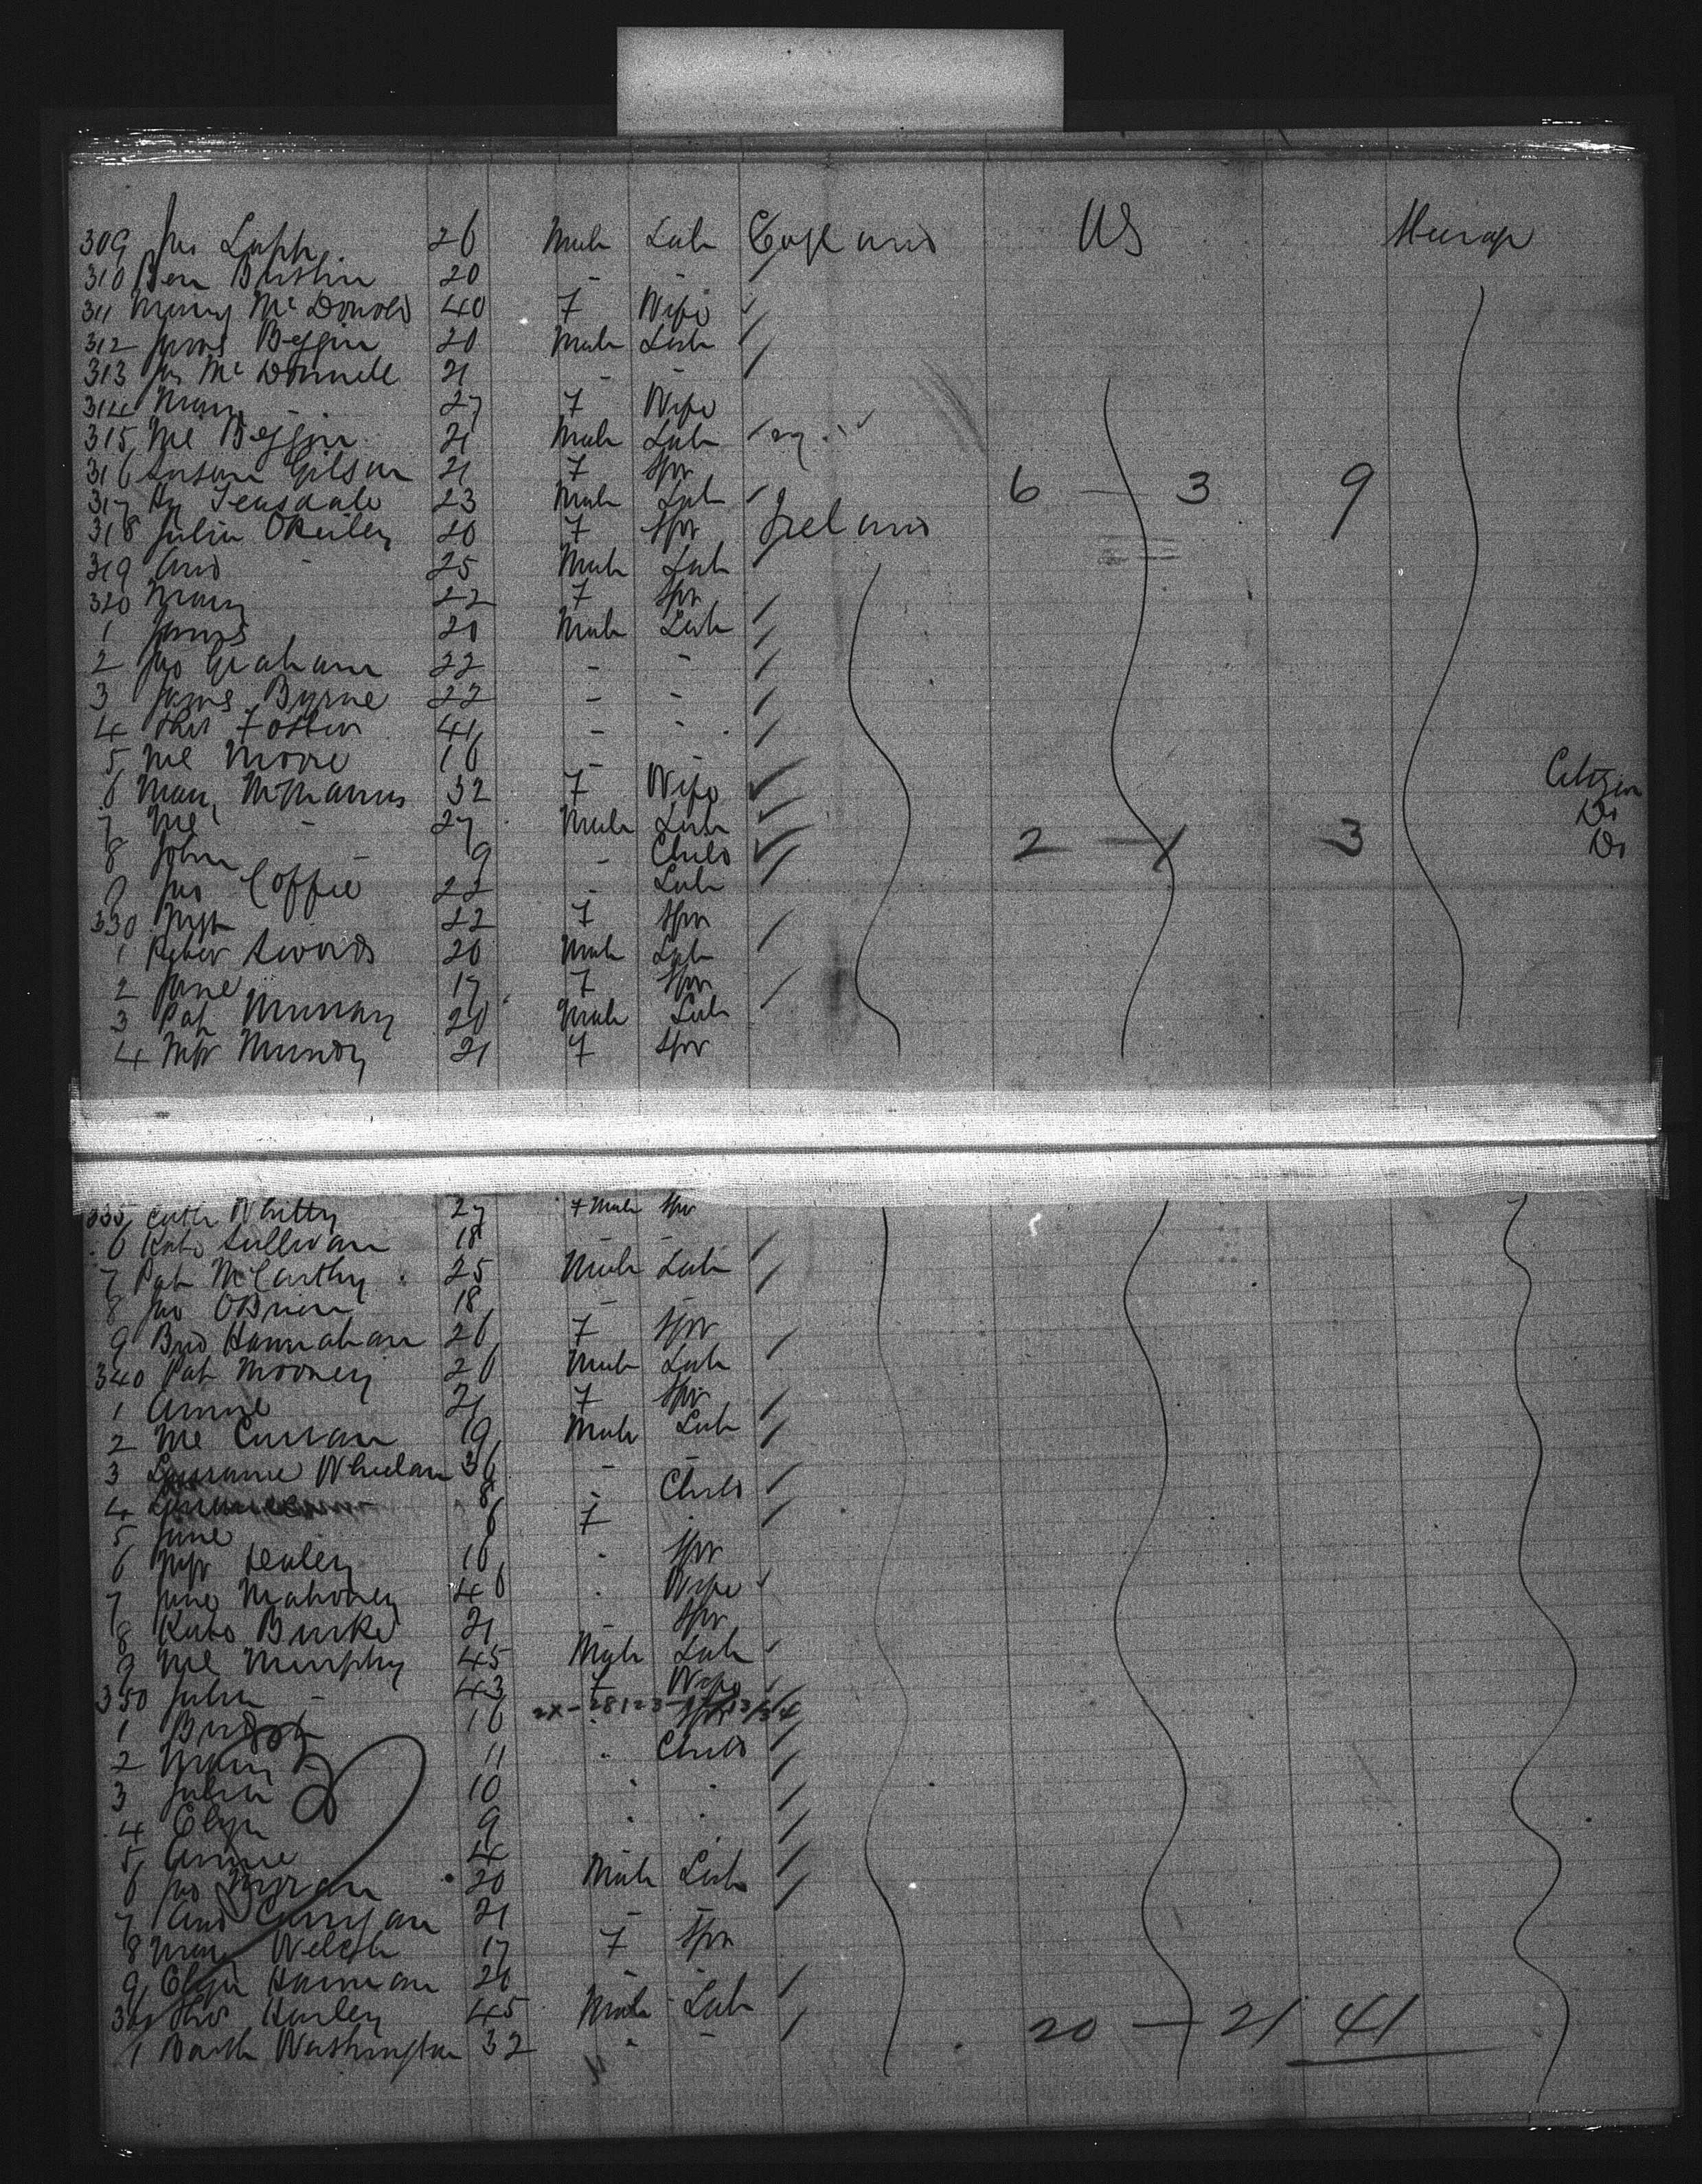 309 Jas Lapp 26 Male Lab England US Steerage
310 Ben Bustin 20 - -
311 Mary McDonald 40 F Wife
312 James Beggin 20 Male Lab
313 Jas McDonnell 21 - -
314 Mary - 27 F Wife
315 Ml Beggin 21 Male Lab
316 Susan Gilson 21 F Spr 6 - 3 9
317 Hy Teasdale 23 Male Lab
318 Julia OReiley 20 F Spr Ireland
319 And - 25 Male Lab
320 Mary 22 F Spr
1 James 20 Male Lab
2 Jno Graham 22 - -
3 James Byrne 22 - -
4 Thos Foster 41 - -
5 Ml Moore 16 - -
6 Mary McManus 32 F Wife Citizen
7 Ml - 27 Male Lab Do
8 John - 9 - Child 2 - 1 3 Do
9 Jno Coffie 22 - Lab
330 22 F Spr
1 Peter Swords 20 Male Lab
2 Jane 17 F Spr
3 Pat Murray 20 Male Lab
4 Mgt Mundy 21 F Spr
335 Cath Whitty 27 F Male Spr
6 Kate Sullivan 18 - -
7 Pat McCarthy 25 Male Lab
8 Jno OBrien 18 - -
9 Brid Hannahan 26 F Spr
340 Pat Mooney 20 Male Lab
1 Annie 21 F Spr
2 Ml Curran 19 Male Lab
3 Whelan 36 - -
4 8 - Child
5 Jane 6 F
6 Mgt Healey 16 Spr
7 Jane Mahoney 40 Wife
8 Kate Burke 21 Spr
9 Ml Murphy 45 Male Lab
350 Julia - 43 F Wife
1 Bridget 16 2x-28123 Spr
2 Mary 11 Child
3 Julia 10
4 Eliza 9
5 Annie 4
6 Jno Moran 20 Male Lab
7 And Corrigan 21 - -
8 Mary Welch 17 F Spr
9 Eliza Hannan 20 - -
360 Thos Hurley 45 Male Lab 20 - 21 41
1 Barth Washington 32 -